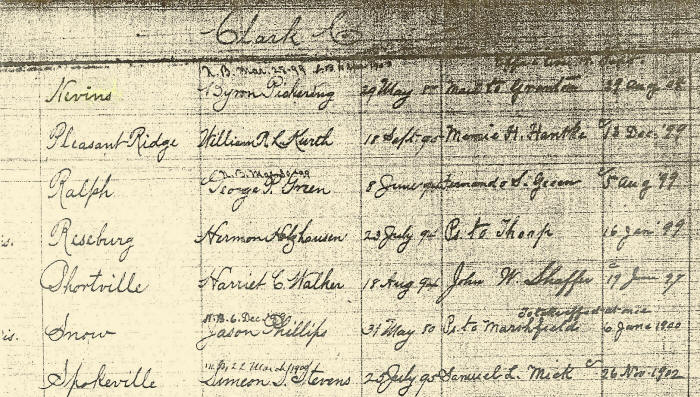 Clark C
N. B. Mar. 29-99
Nevins Byron Pickering 29 May 85 Mail to Granton 31 Aug
Pleasant Ridge William R. L. Kurth 18 Sept. 95 Mamie H. Hantke 13 Dec. '99
N. B. Mar 30-99
Ralph George P. Green 8 June 94 Fernando S. Green 5 Aug '99
is. Reseburg Hermon Holzhausen 23 July 94 Ps. to Thorp 16 Jan' 99
Shortville Harriet C. Walker 18 Aug 94 John W. Shaffer 19 97
N. B. 6. Dec.
is. Snow Jason Phillips 31 May 80 Ps. to Marshfield 6 June 1900
22 Mar
Spokeville Simeon S. Stevens 25 July 95 Samuel L. Mick 26 Nov. 1902